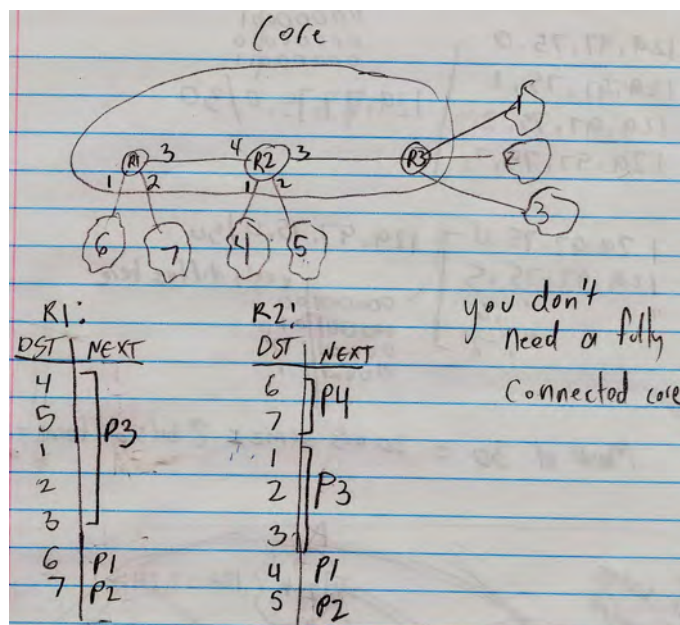 Core
1
R1 3 4 R2 3 R3 2
1 2 1 2
3
6 7 4 5
R1:
DST NEXT
4
5 P3
1
2
3
6 P1
7 P2
R2:
DST NEXT
6 P4
7
1
2 P3
3
4 P1
5 P2
you don't
need a fully
connected core